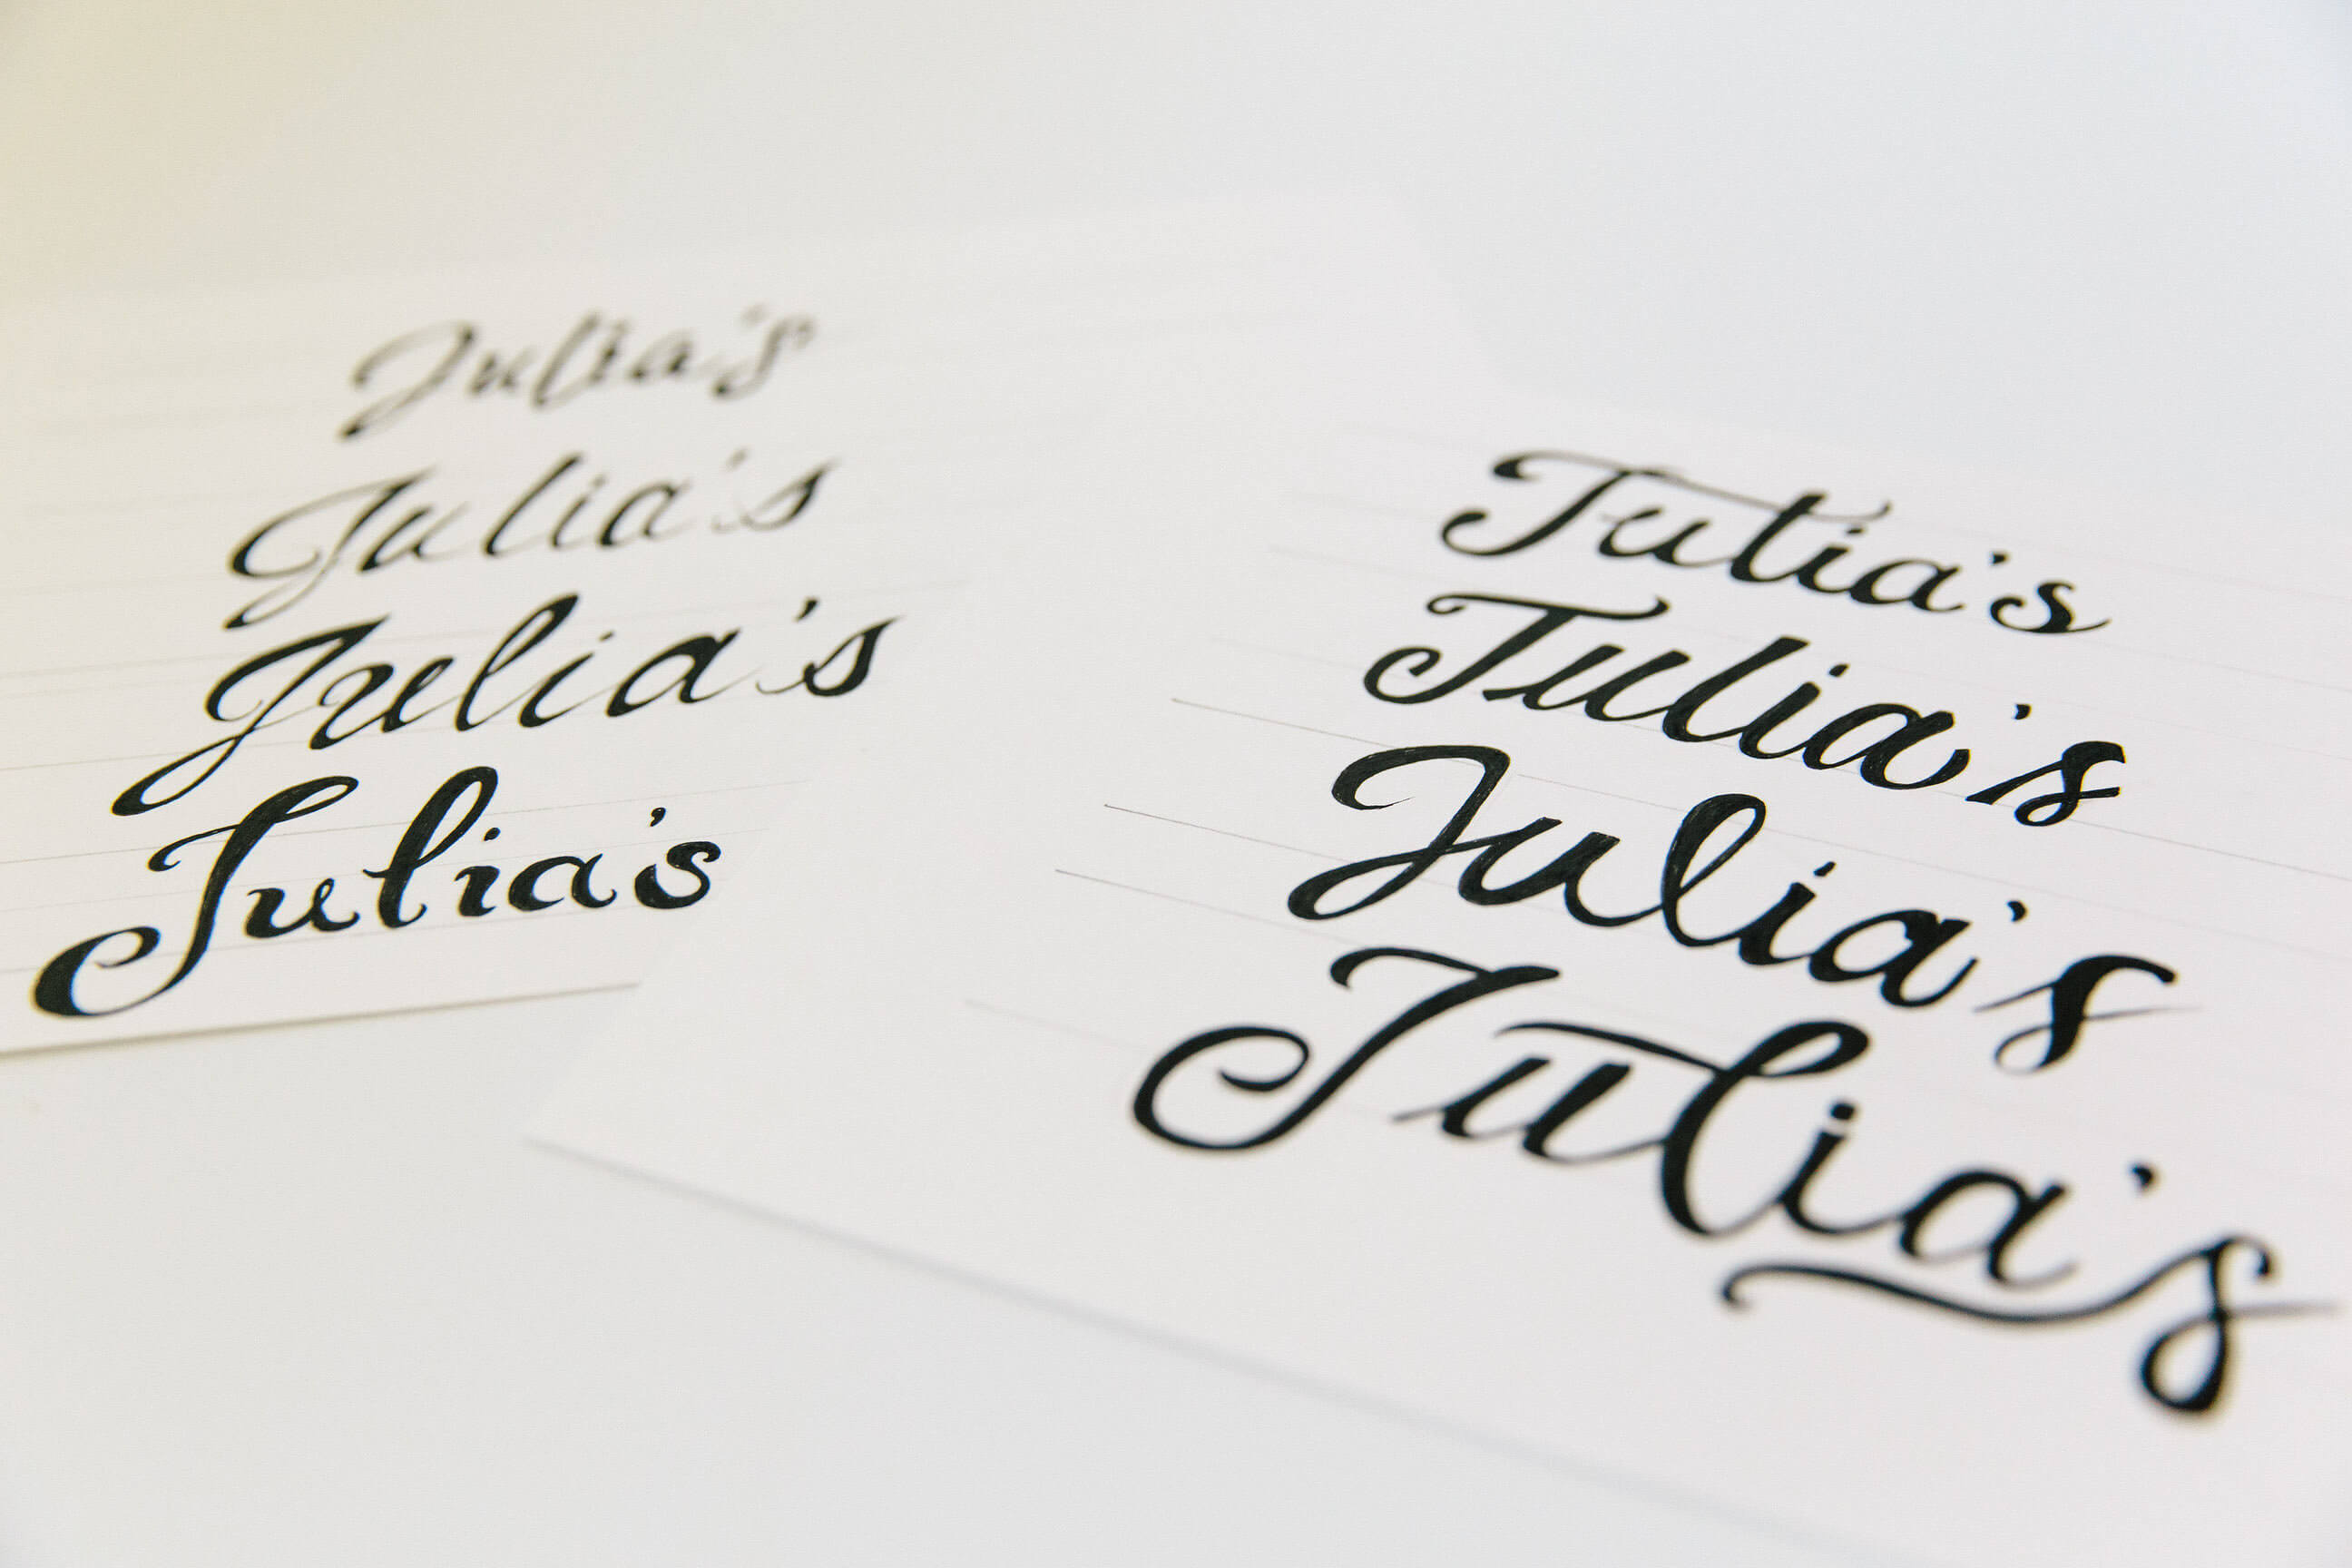 Julia's
Julia's
Julia's
Julia's
Julia's
Julia's
Julia's
Julia's